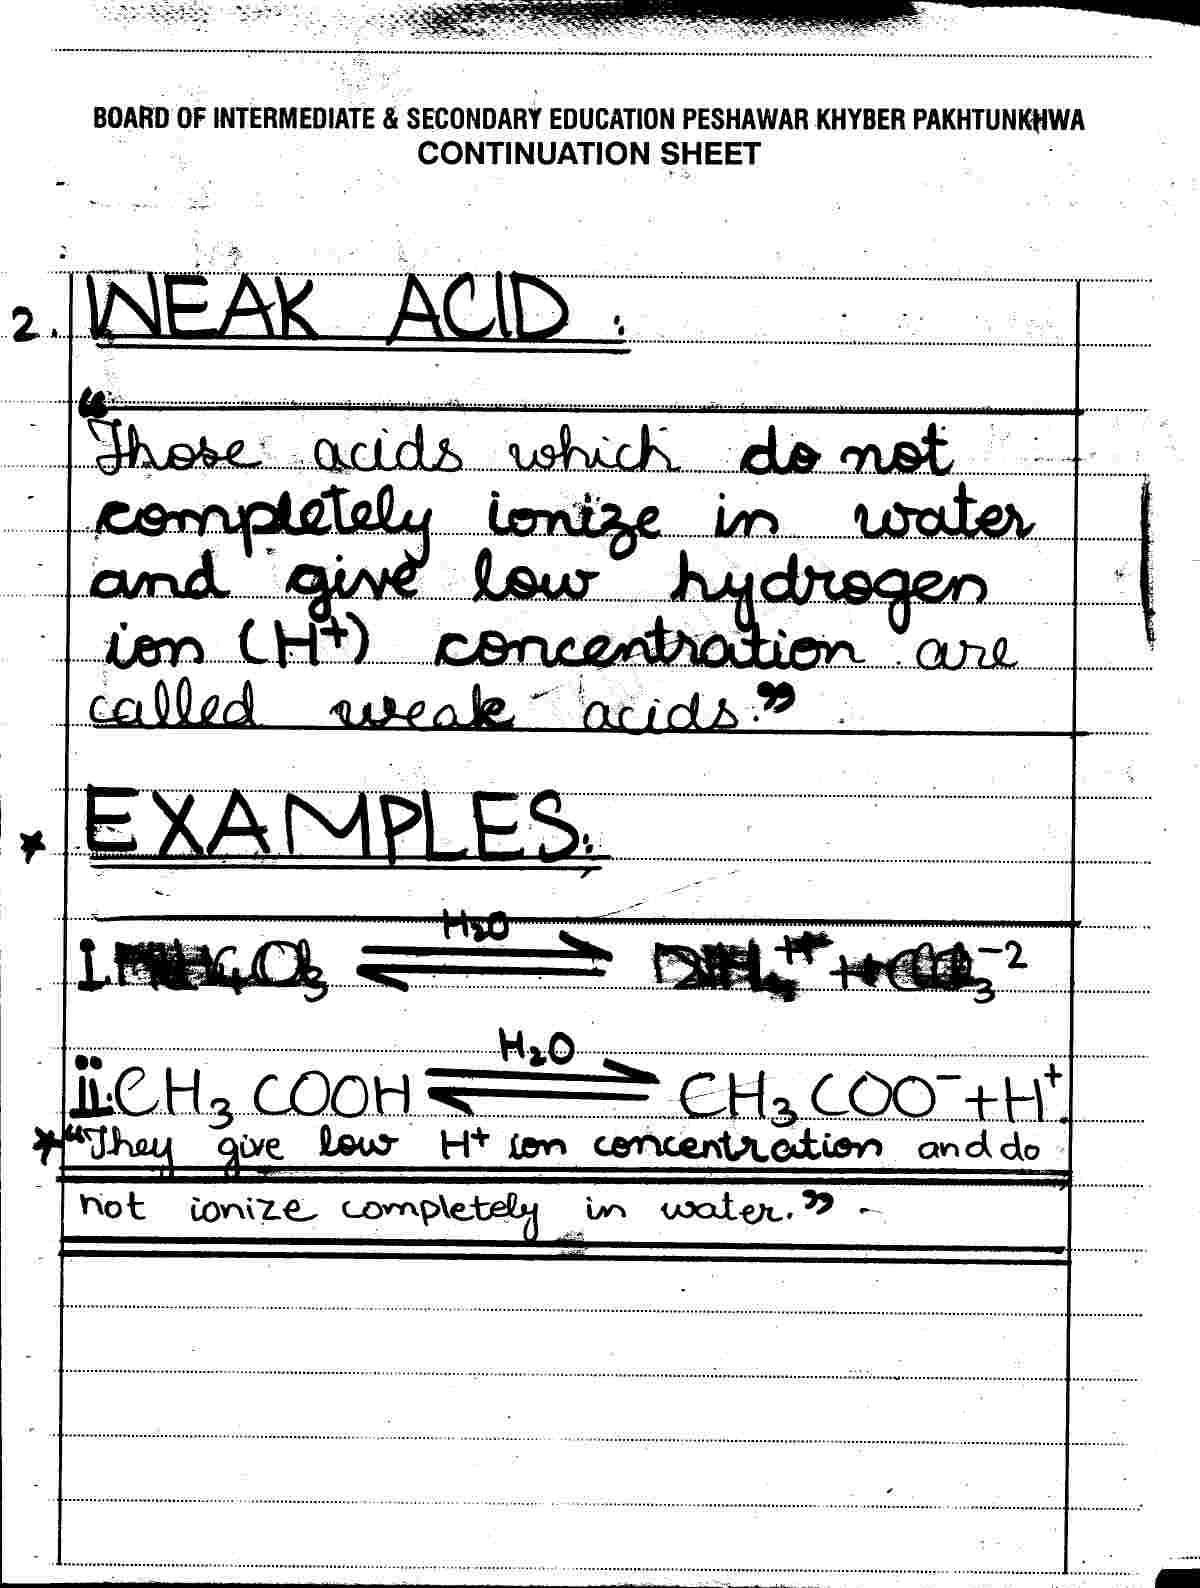 BOARD OF INTERMEDIATE & SECONDARY EDUCATION PESHAWAR KHYBER PAKHTUNKHWA
CONTINUATION SHEET
2. WEAK ACID :
“Those acids which do not
completely ionize in water
and give low hydrogen
ion (H⁺) concentration are
called weak acids.”
* EXAMPLES:
H₂O
i. ⇌
ii. CH₃COOH ⇌ CH₃COO⁻ + H⁺.
H₂O
* “They give low H⁺ ion concentration and do
not ionize completely in water.”